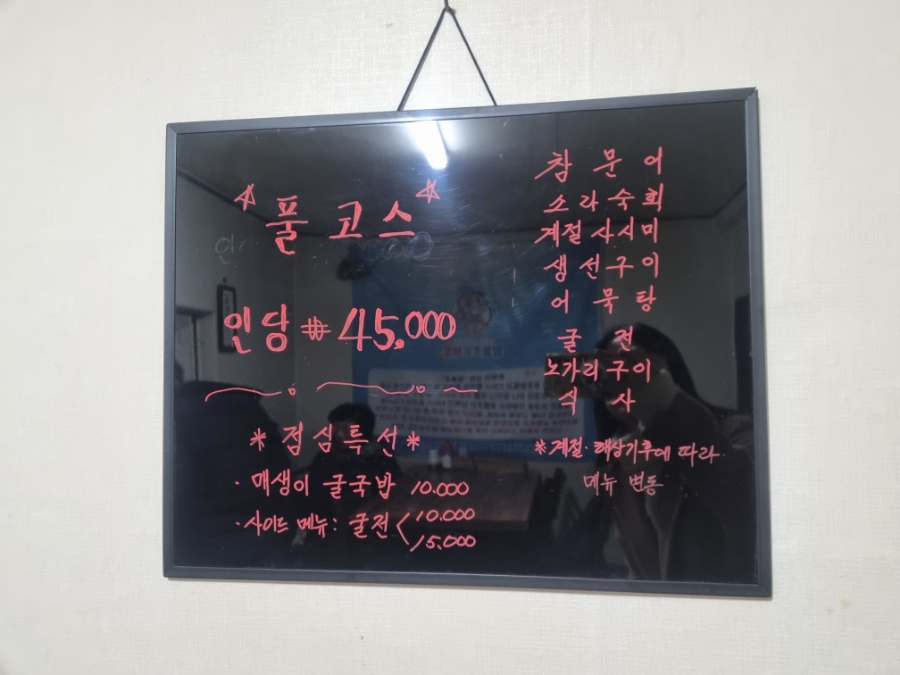 풀코스
인당 ₩45,000
*점심특선*
· 매생이 굴국밥 10.000
· 사이드 메뉴: 굴전 < 10.000
15.000
참문어
소라숙회
계절사시미
생선구이
어묵탕
굴전
노가리구이
식사
*계절·해상기후에 따라
메뉴 변동